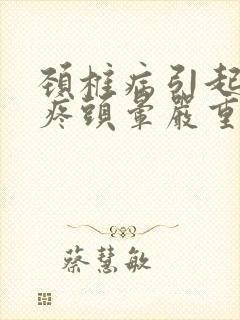 頚椎病引起
疼頭暈嚴重
蔡慧敏